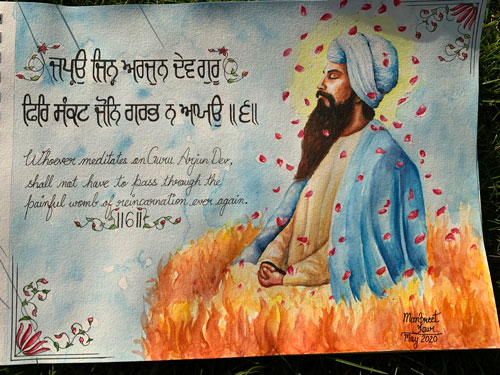 ਜਪ੍ਯਉ ਜਿਨ੍ਹ ਅਰਜੁਨ ਦੇਵ ਗੁਰੂ
ਫਿਰਿ ਸੰਕਟ ਜੋਨਿ ਗਰਭ ਨ ਆਯਉ ॥੬॥
Whoever meditates on Guru Arjun Dev,
shall not have to pass through the
painful womb of reincarnation ever again.
||6||
Manpreet
Kaur
May 2020